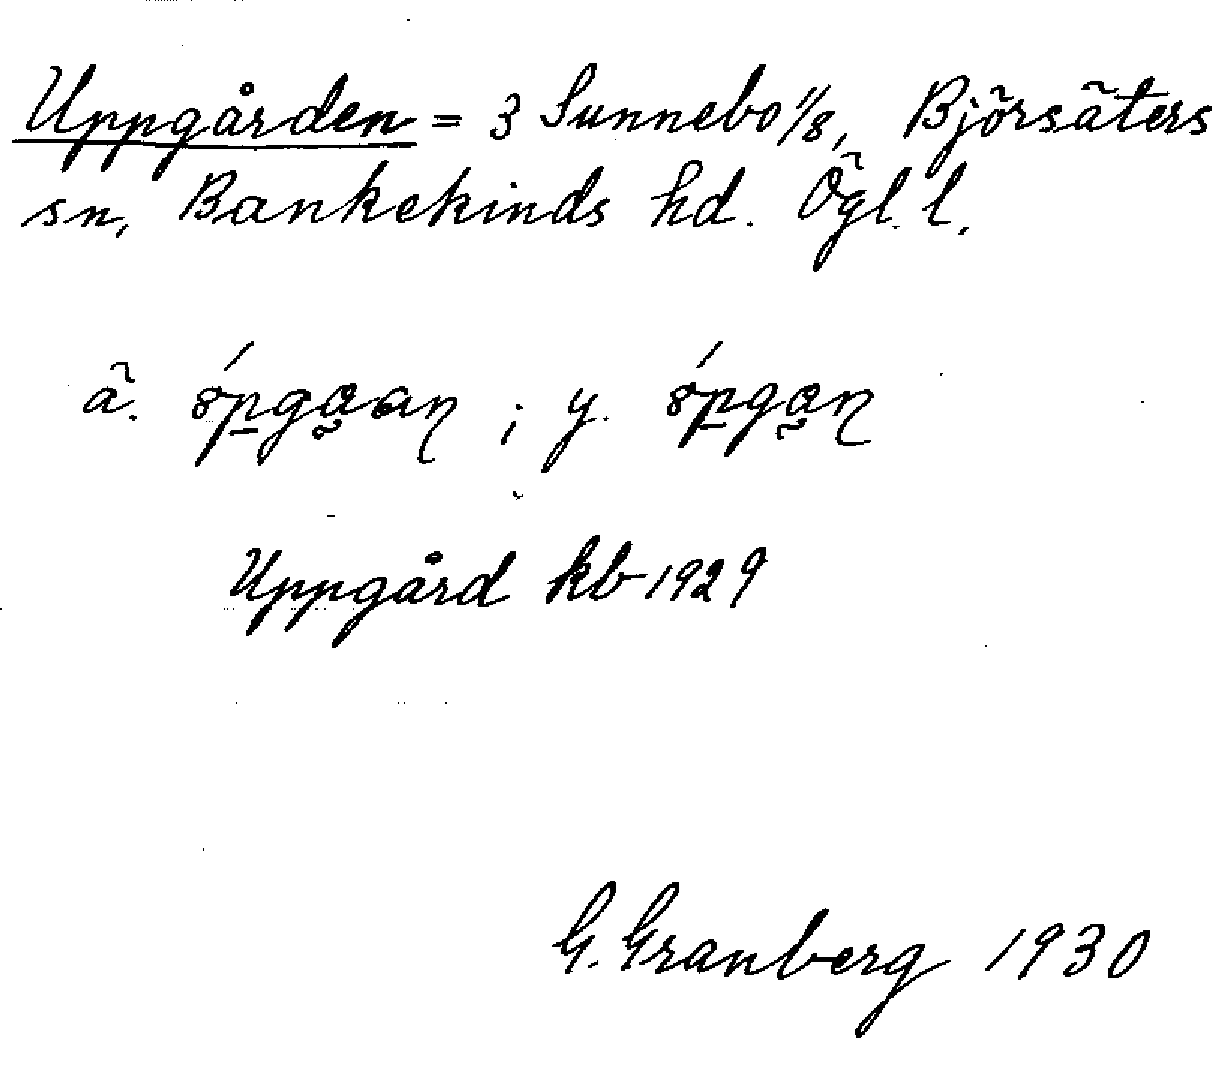 Uppgården = 3 Sunnebo 1/8, Björsäters
sn, Bankekinds hd. Ögl. l.
ä. ; y.
Uppgård kb 1929
G. Granberg 1930